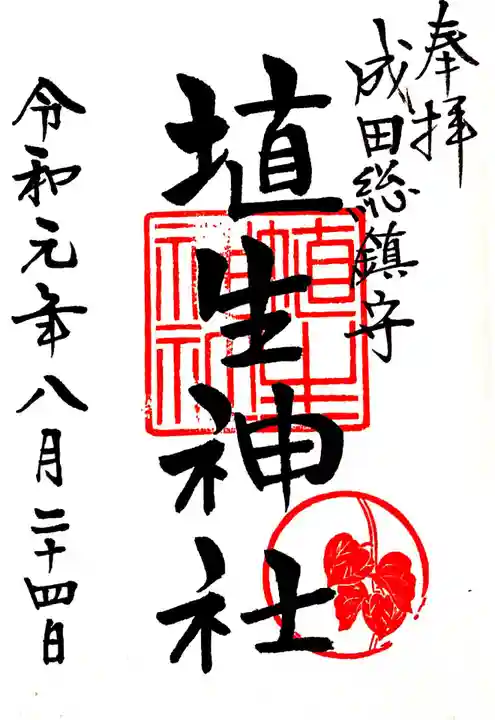 奉拝
成田総鎮守
埴生神社
令和元年八月二十四日
埴生神社